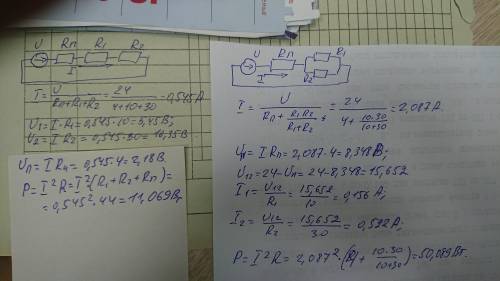 U Rп R1 R2
I
I = U / (Rп+R1+R2) = 24 / (4+10+30) = 0,545 А
U1 = I R1 = 0,545·10 = 5,45 В;
U2 = I R2 = 0,545·30 = 16,35 В
Uп = I Rп = 0,545·4 = 2,18 В
P = I²R = I²(R1+R2+Rп) =
= 0,545²·44 = 11,069 Вт
U Rп R1
I R2
I = U / (Rп + R1R2/(R1+R2)) = 24 / (4 + 10·30/(10+30)) = 2,087 А;
Uп = I Rп = 2,087·4 = 8,348 В;
U12 = 24-Uп = 24-8,348 = 15,652
I1 = U12/R1 = 15,652/10 = 0,156 А;
I2 = U12/R2 = 15,652/30 = 0,522 А;
P = I²R = 2,087²·( + 10·30/(10+30)) = 50,089 Вт.